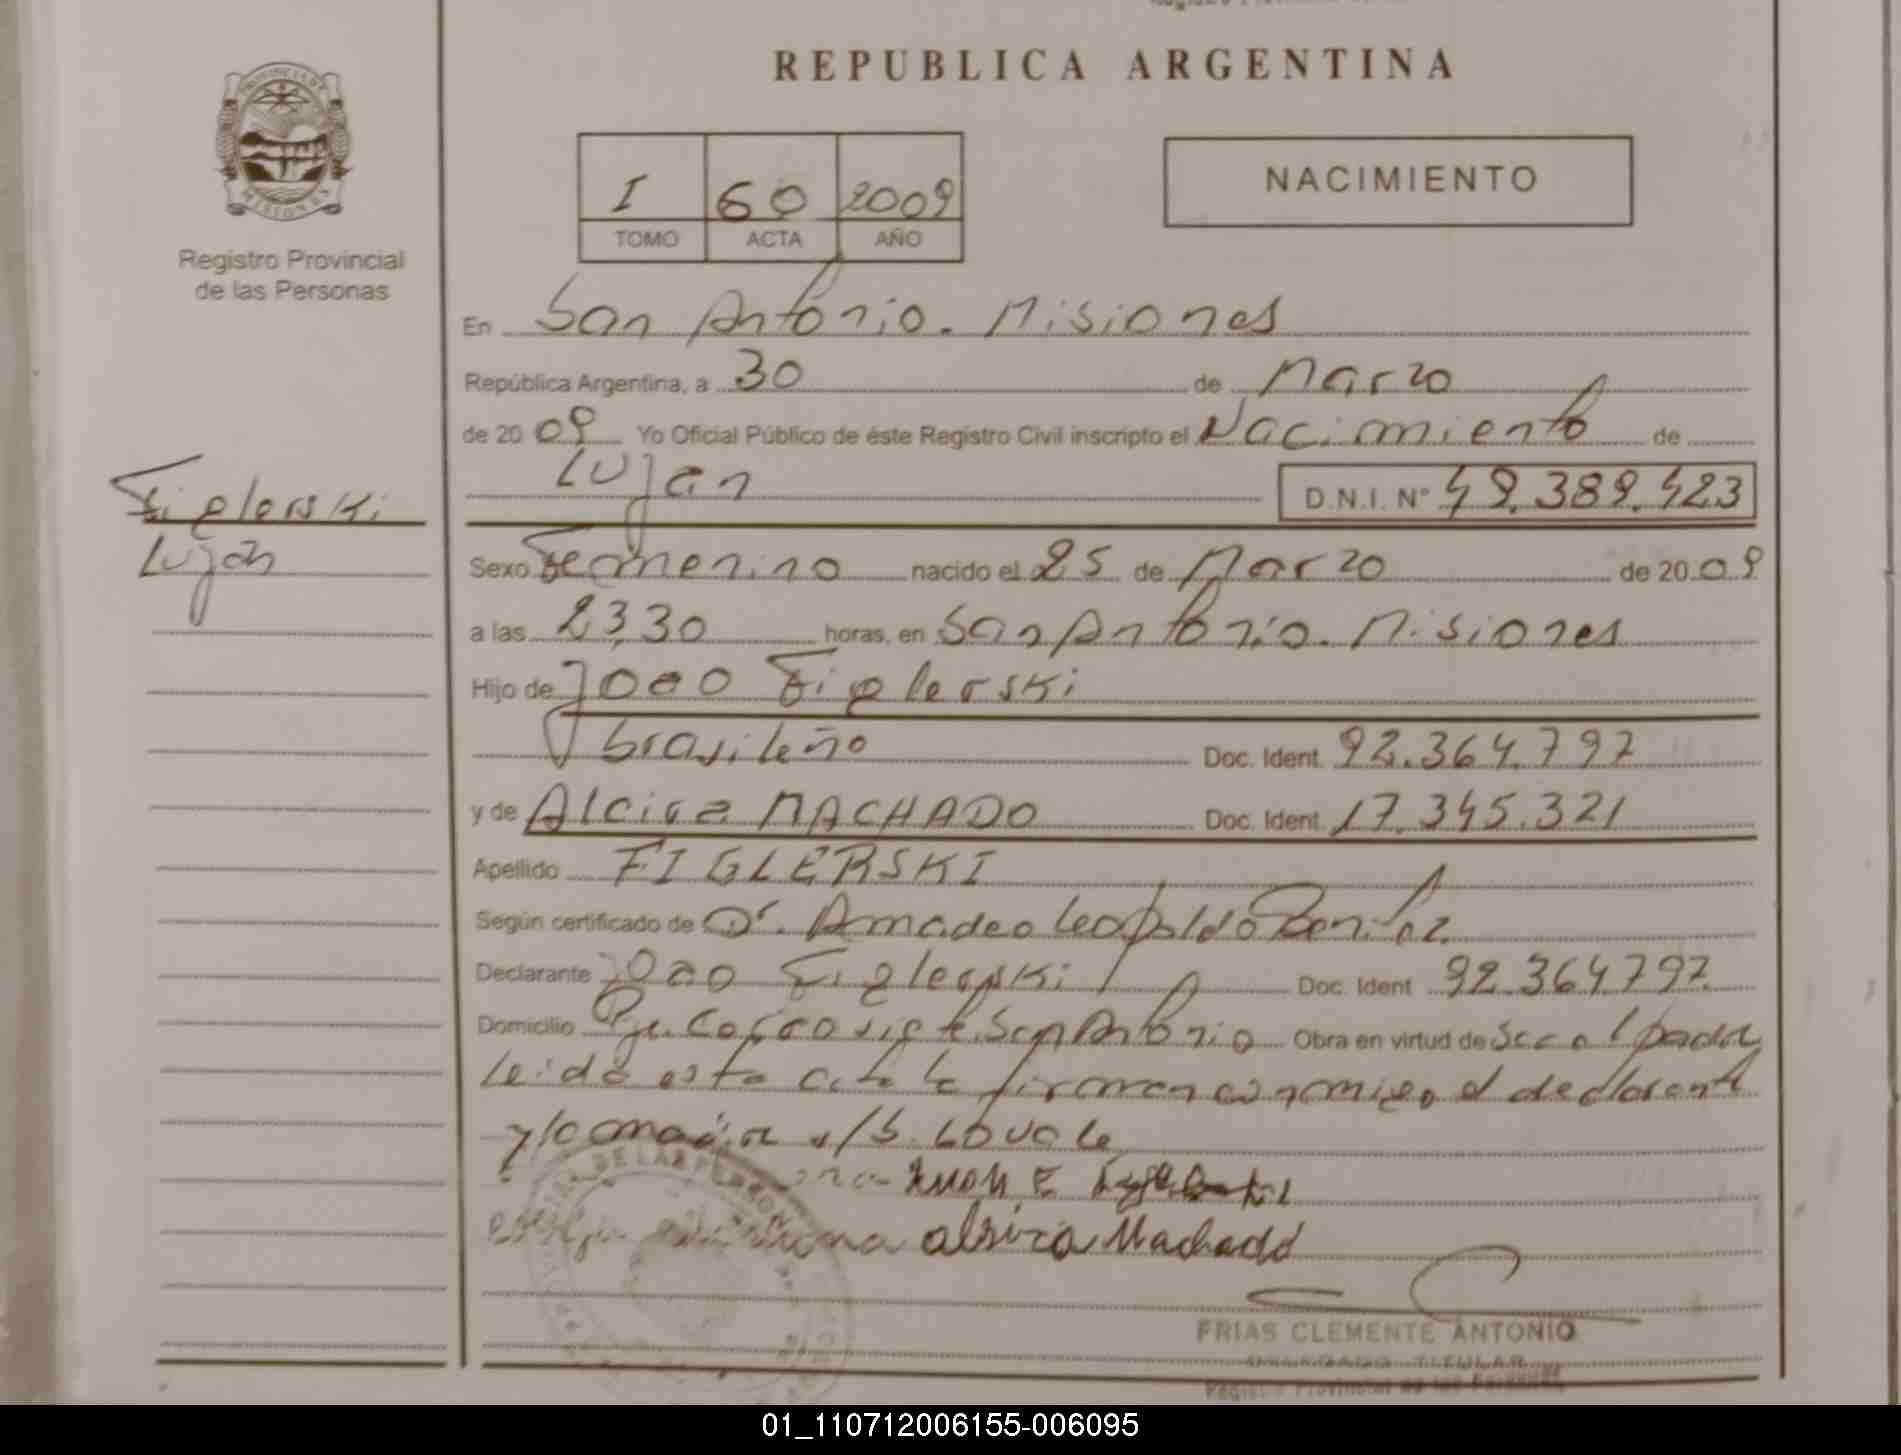 REPUBLICA ARGENTINA
PROVINCIA DE
MISIONES
Registro Provincial
de las Personas
I 60 2009
TOMO ACTA AÑO
NACIMIENTO
En San Antonio. Misiones
República Argentina, a 30 de Marzo
de 2009 Yo Oficial Público de éste Registro Civil inscripto el Nacimiento de
Lujan D.N.I. N° 49.389.423
Figlerski
Lujan
Sexo Femenino nacido el 25 de Marzo de 2009
a las 23,30 horas, en San Antonio. Misiones
Hijo de Joao Figlerski
brasileño Doc. Ident. 92.364.797
y de Alcira MACHADO Doc. Ident. 17.345.321
Apellido FIGLERSKI
Según certificado de Dr. Amadeo Leopoldo Benitez
Declarante Joao Figlerski Doc. Ident 92.364.797
Domicilio San Antonio Obra en virtud de ser el padre
Leida esta acta la firman conmigo el declarante
y la madre
alsira Machado
FRIAS CLEMENTE ANTONIO
DELEGADO TITULAR
Registro Provincial de las Personas
01_110712006155-006095